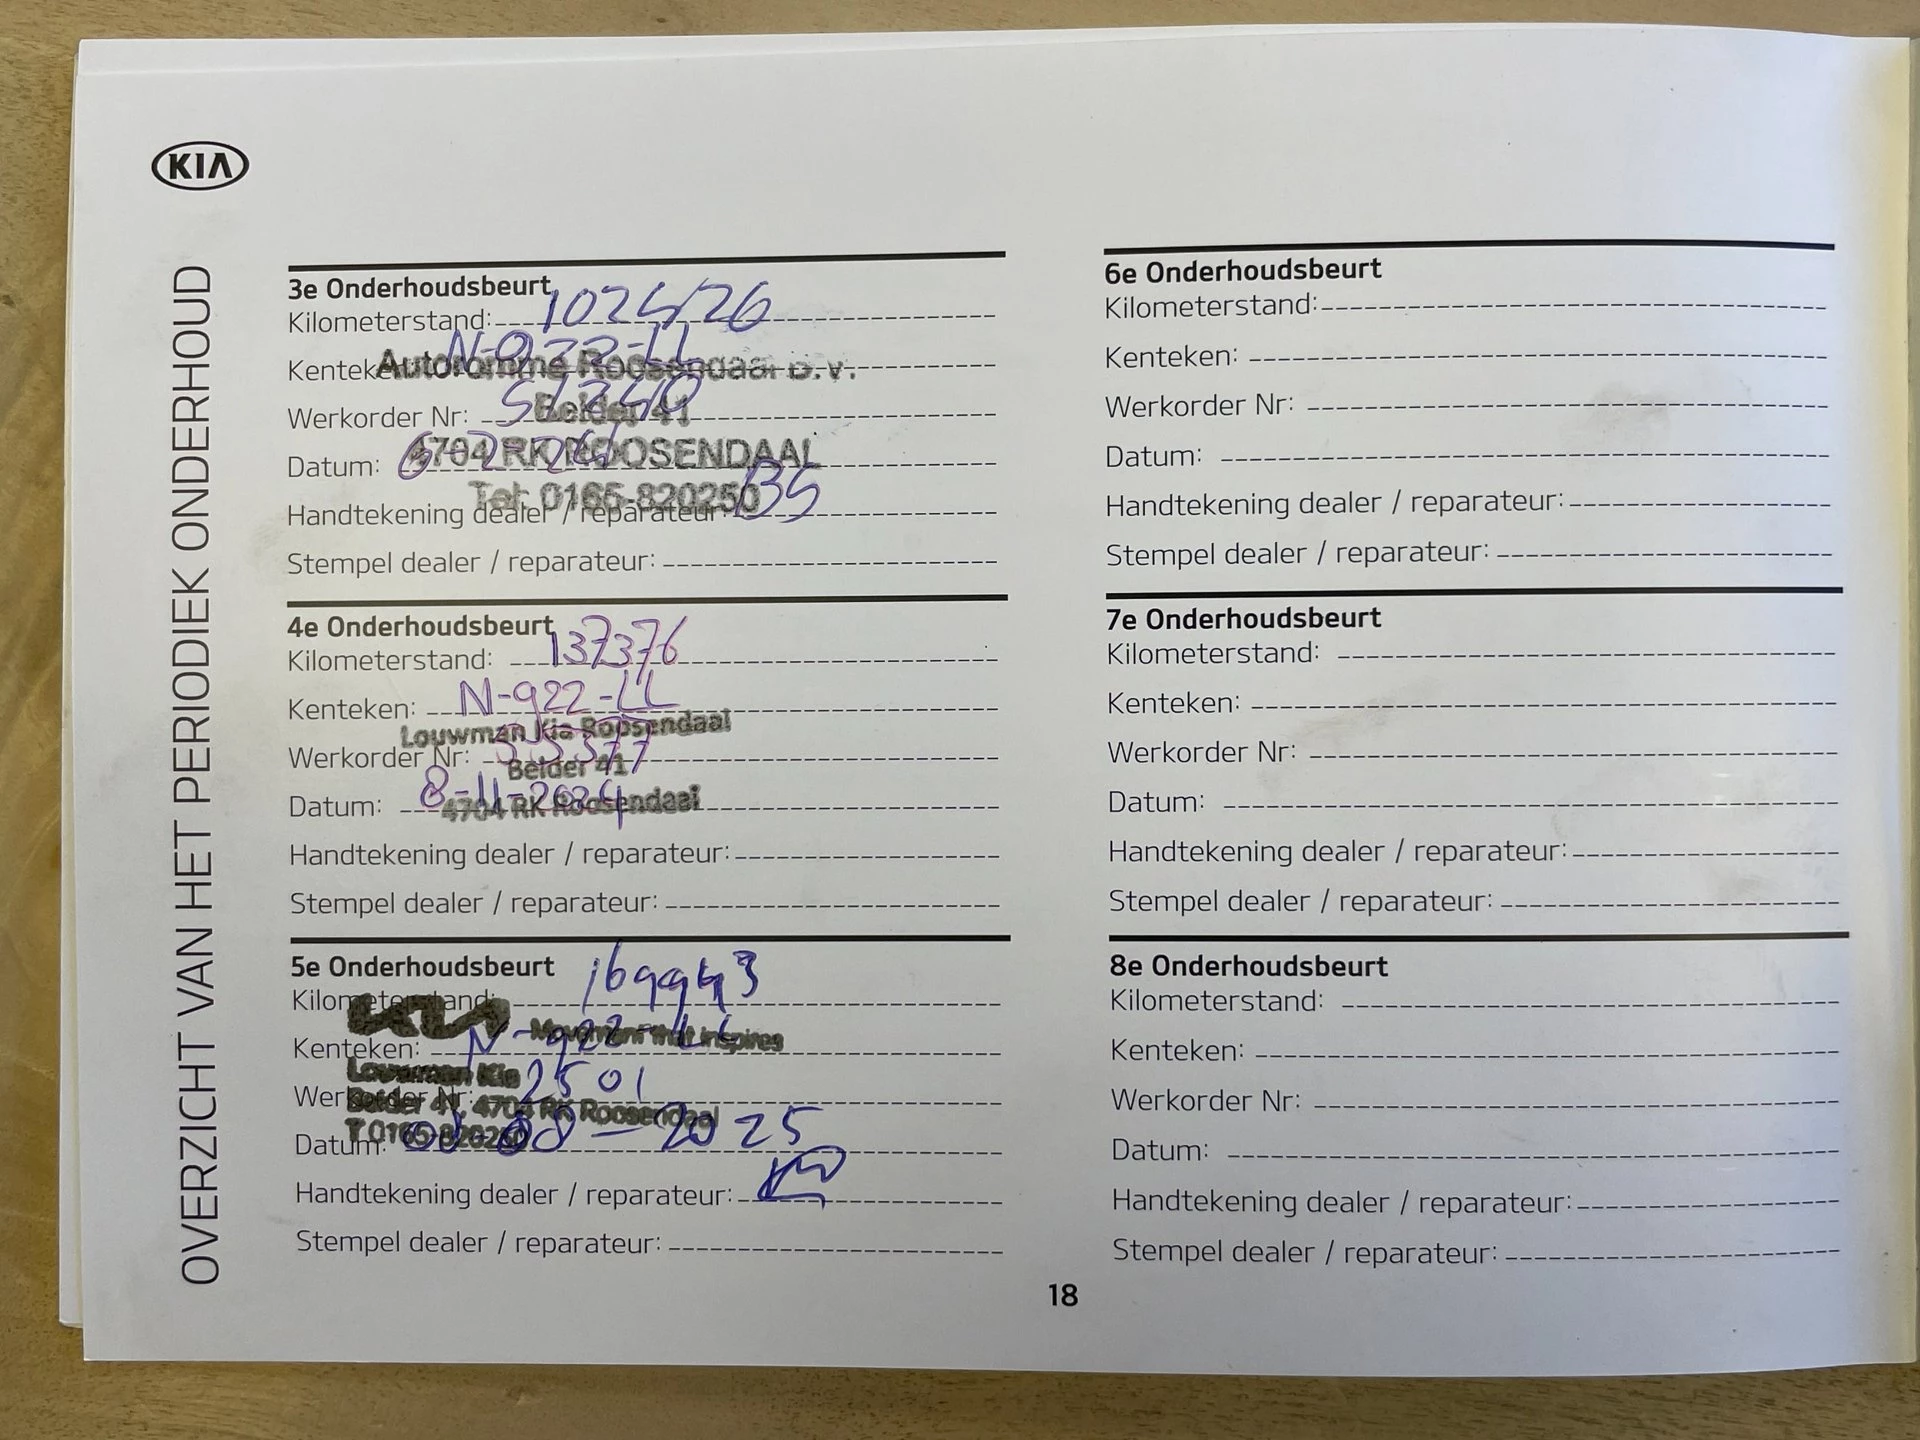 KIA
OVERZICHT VAN HET PERIODIEK ONDERHOUD
3e Onderhoudsbeurt
Kilometerstand: 102426
Kenteken: N-922-LL
Autoromme Roosendaal b.v.
Werkorder Nr:
Belder 41
Datum: 6-2-24
4704 RK ROOSENDAAL
Tel: 0165-820250
Handtekening dealer / reparateur: BS
Stempel dealer / reparateur:
4e Onderhoudsbeurt
Kilometerstand: 137376
Kenteken: N-922-LL
Louwman Kia Roosendaal
Werkorder Nr:
Belder 41
Datum: 8-11-2024
4704 RK Roosendaal
Handtekening dealer / reparateur:
Stempel dealer / reparateur:
5e Onderhoudsbeurt
Kilometerstand: 169943
KIA Movement that inspires
Kenteken: N-922-LL
Louwman Kia
Werkorder Nr: 2501
Belder 41, 4704 RK Roosendaal
T 0165-820250
Datum: 08-2025
Handtekening dealer / reparateur:
Stempel dealer / reparateur:
6e Onderhoudsbeurt
Kilometerstand:
Kenteken:
Werkorder Nr:
Datum:
Handtekening dealer / reparateur:
Stempel dealer / reparateur:
7e Onderhoudsbeurt
Kilometerstand:
Kenteken:
Werkorder Nr:
Datum:
Handtekening dealer / reparateur:
Stempel dealer / reparateur:
8e Onderhoudsbeurt
Kilometerstand:
Kenteken:
Werkorder Nr:
Datum:
Handtekening dealer / reparateur:
Stempel dealer / reparateur:
18